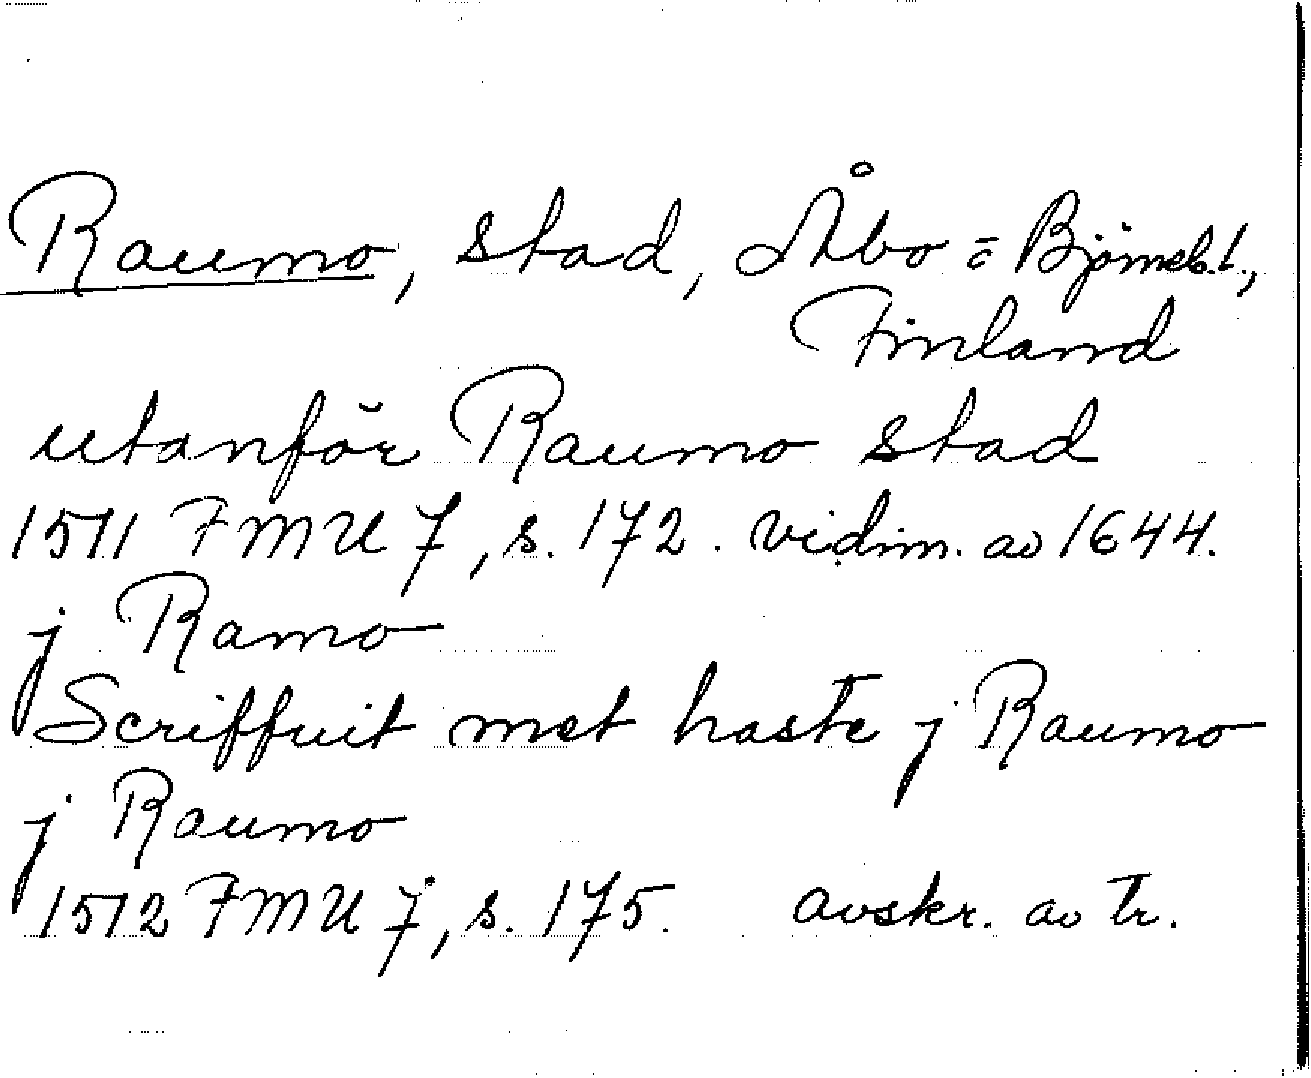 Raumo, stad, Åbo = Björneb. l.,
Finland
utanför Raumo stad
1511 FMU 7, s. 172. vidim. av 1644.
j Ramo
Scriffuit met haste j Raumo
j Raumo
1512 FMU 7, s. 175. avskr. av tr.